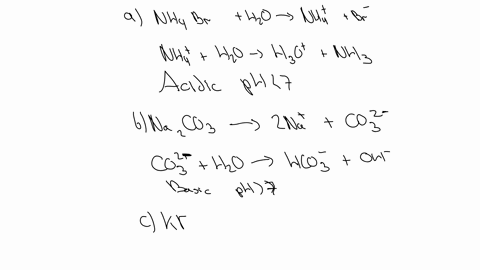 a) NH4Br + H2O → NH4+ + Br-
NH4+ + H2O → H3O+ + NH3
Acidic pH<7
b) Na2CO3 → 2Na+ + CO3 2-
CO3 2- + H2O → HCO3- + OH-
Basic pH>7
c) KF